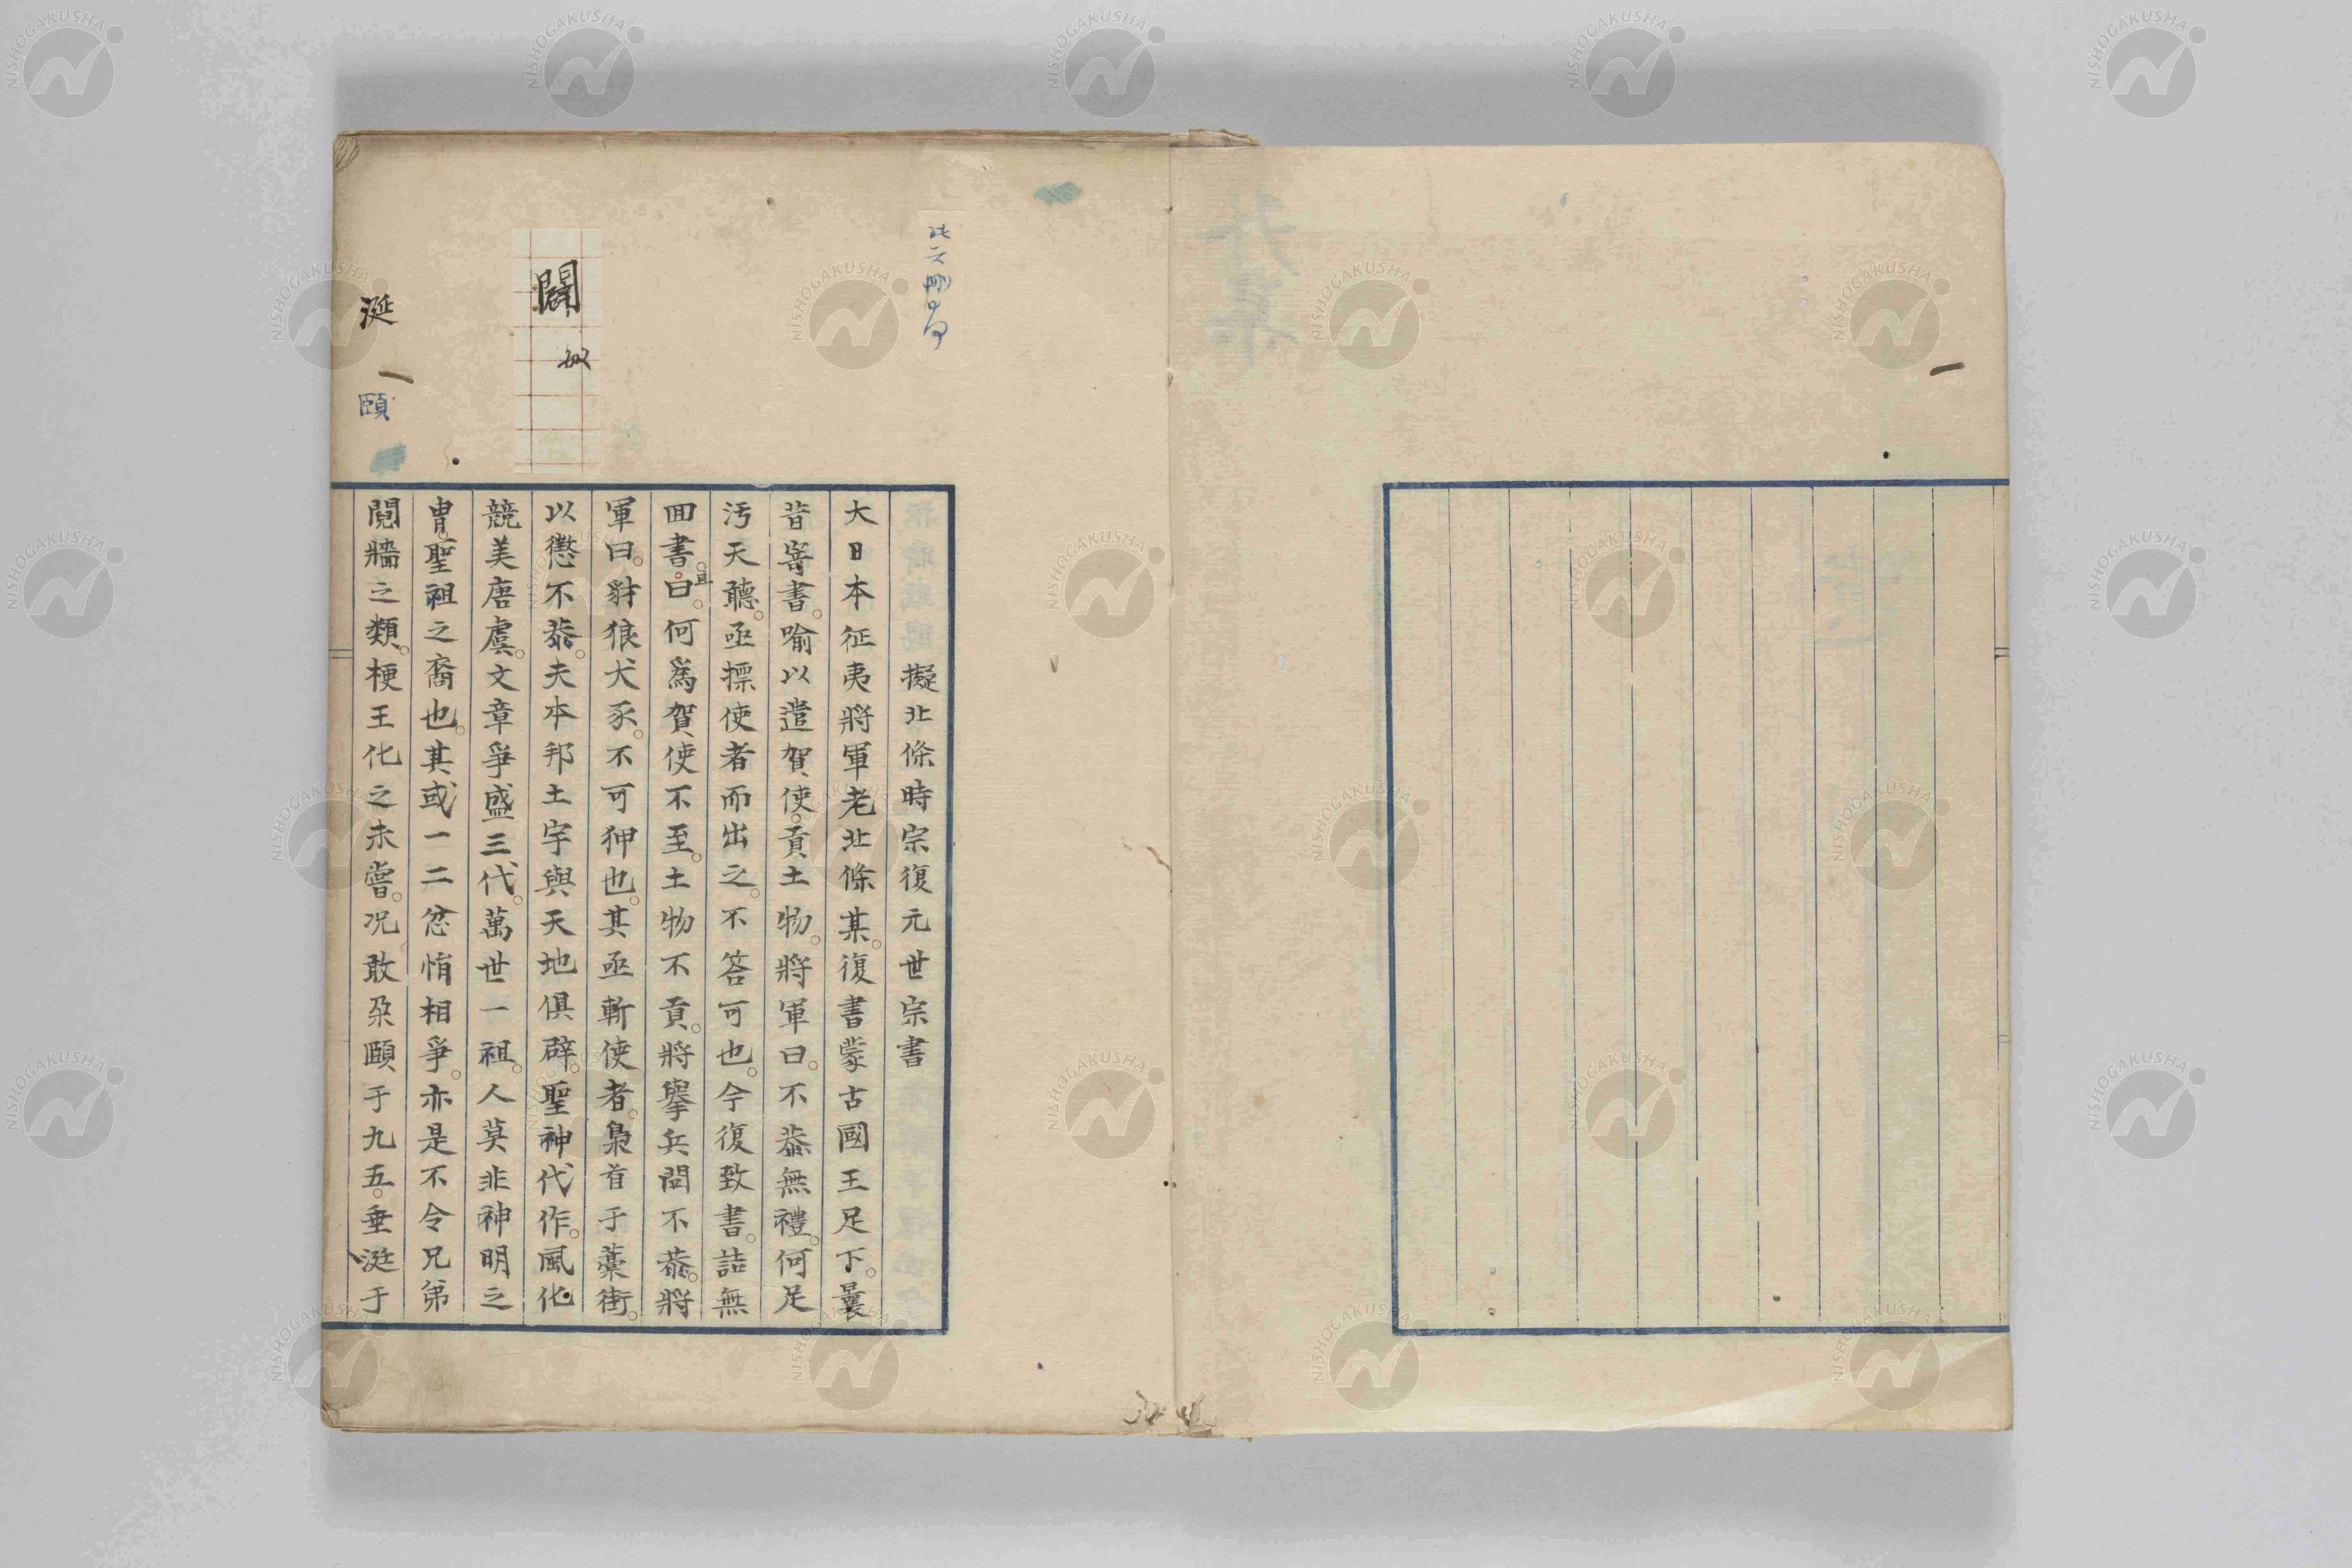 擬北條時宗復元世宗書
大日本征夷將軍老北條某。復書蒙古國王足下。曩
昔寄書。喻以遣賀使。貢土物。將軍曰。不恭無禮。何足
汚天聽。亟摽使者而出之。不答可也。今復致書。詰無
回書。且曰。何爲賀使不至。土物不貢。將擧兵問不恭。將
軍曰。豺狼犬豕。不可狎也。其亟斬使者。梟首于藁街。
以懲不恭。夫本邦土宇與天地俱辟。聖神代作。風化
競美唐虞。文章爭盛三代。萬世一祖。人莫非神明之
冑。聖祖之裔也。其或一二忿悁相爭。亦是不令兄弟
鬩牆之類。梗王化之未嘗。况敢朶頤于九五。垂涎于
闢
涎
頤
NISHOGAKUSHA